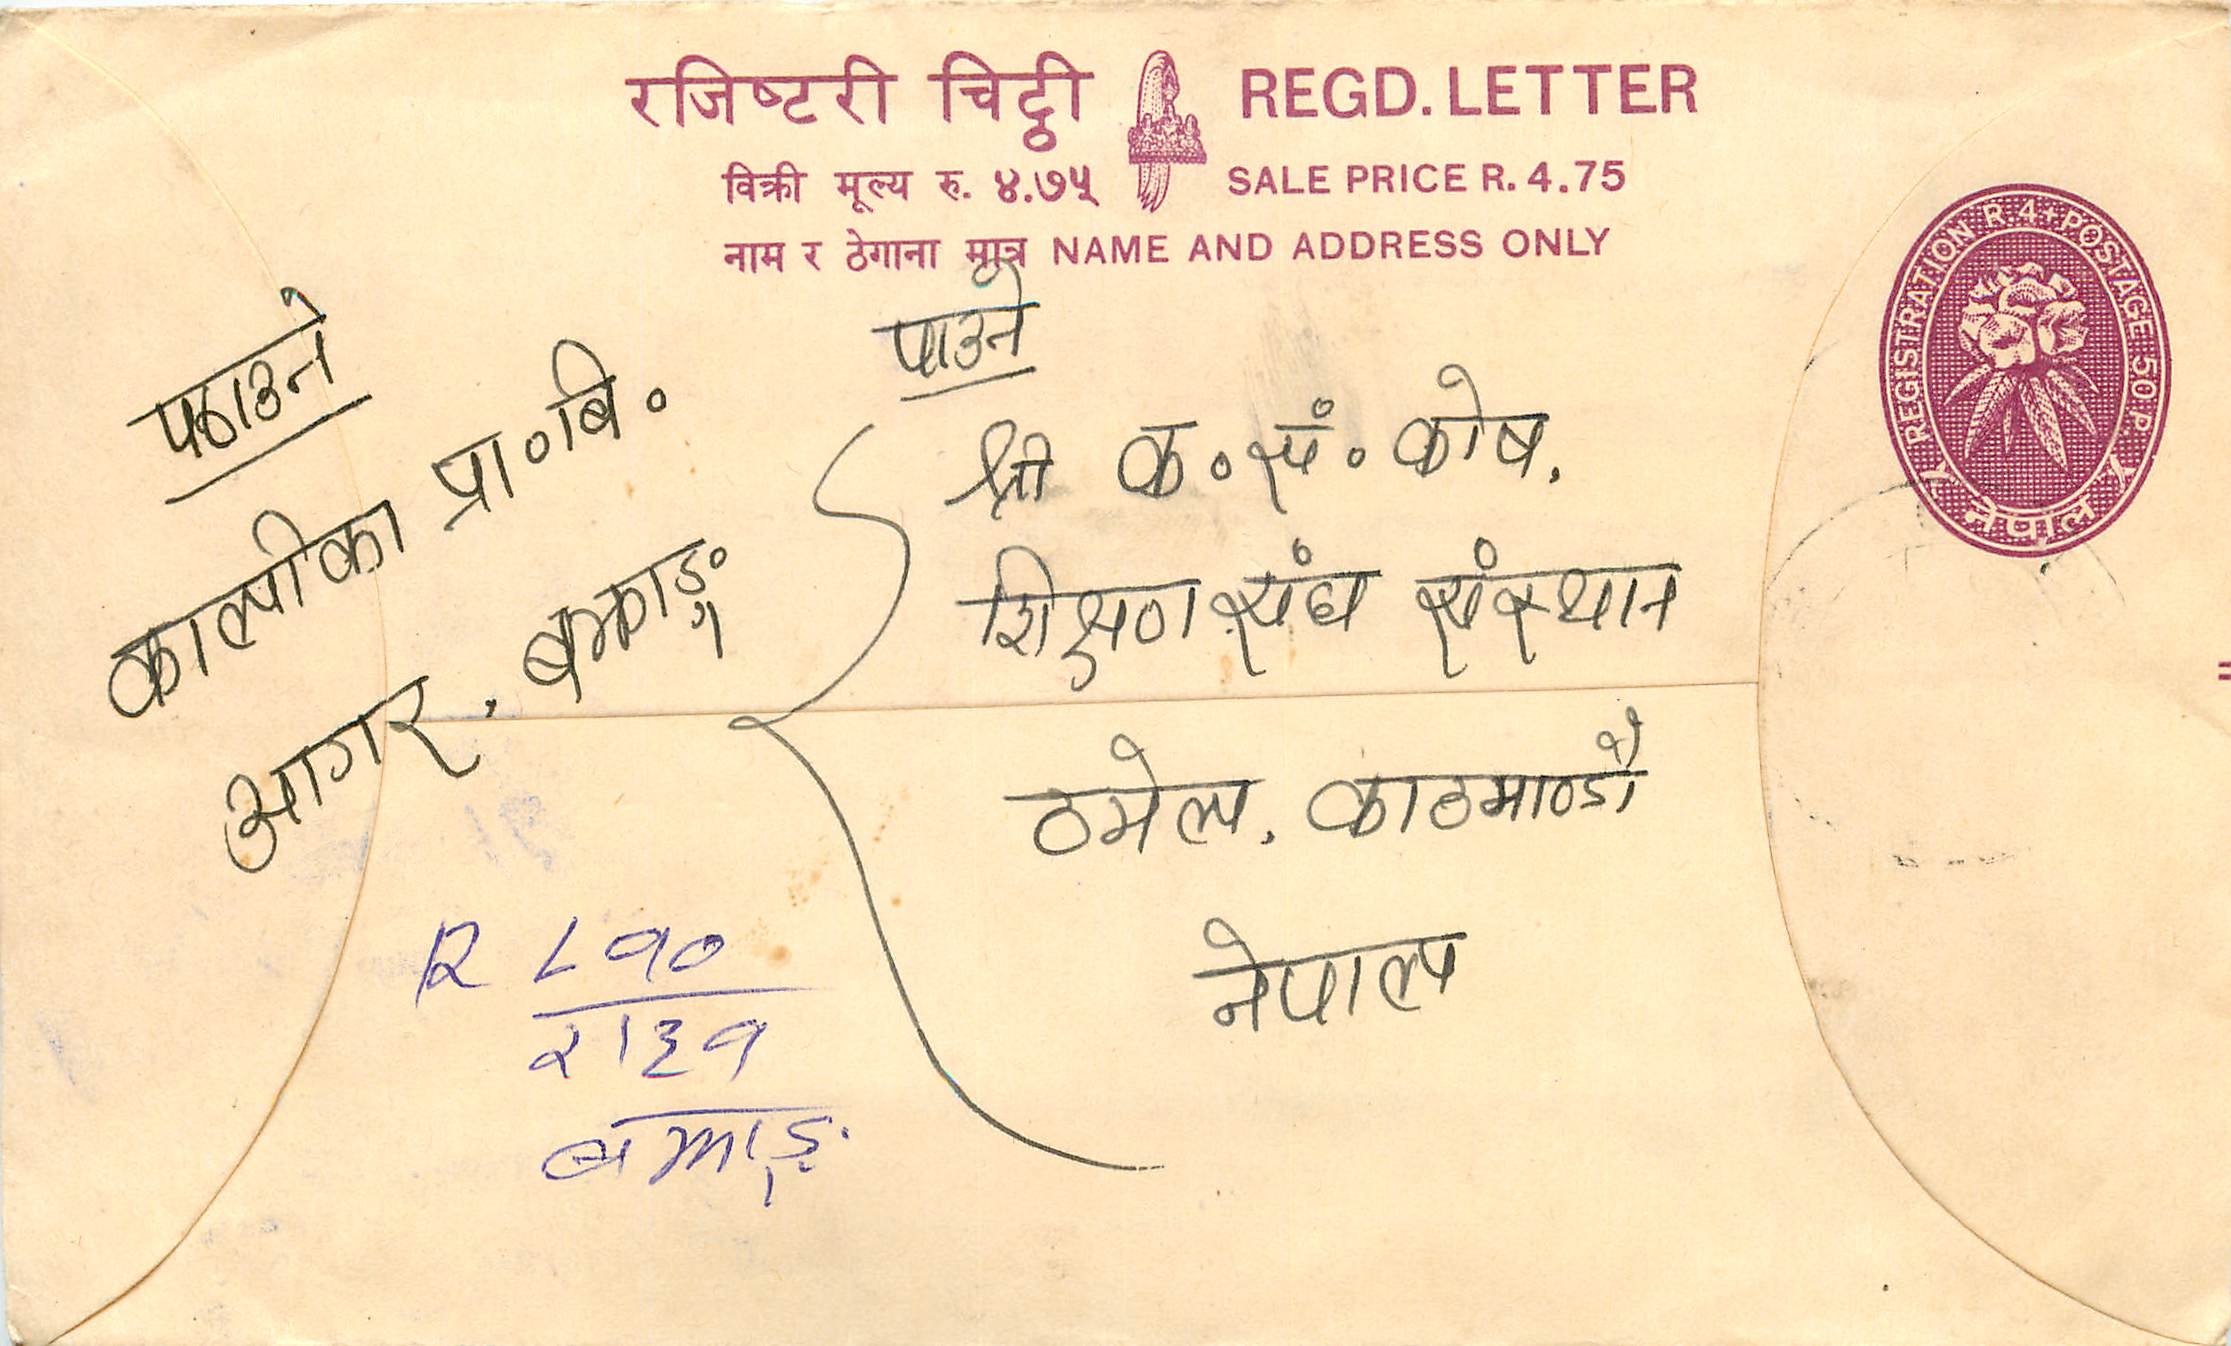 रजिष्टरी चिट्ठी REGD. LETTER
विक्री मूल्य रु. ४.७५ SALE PRICE R. 4.75
नाम र ठेगाना मात्र NAME AND ADDRESS ONLY
REGISTRATION R. 4+POSTAGE 50 P
नेपाल
पठाउने
काल्पीका प्रा॰बि॰
आगर, बझाङ्ग
पाउने
श्री क॰सं॰ कोष,
शिक्षण संघ संस्थान
ठमेल, काठमाण्डौ
नेपाल
R ८१०
२।३१
बझाङ्ग